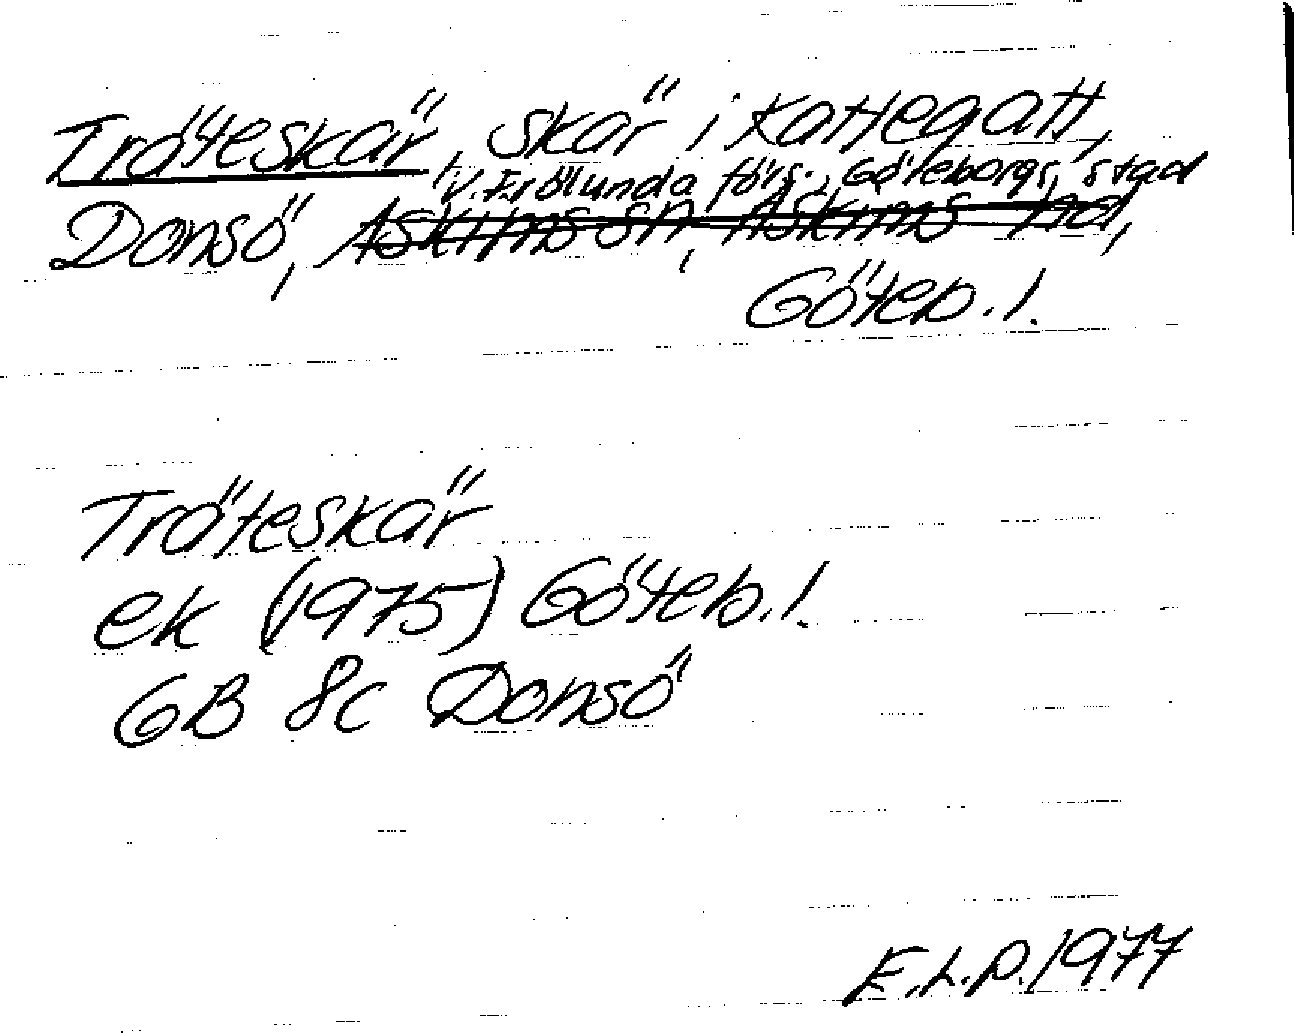 Träteskär, skär i Kattegatt,
V. Frölunda förs. Göteborgs stad
Donsö, Askims sn, Askims hd,
Göteb. l.
Träteskär
ek (1975) Göteb. l.
GB 8c Donsö
E.L.P. 1977